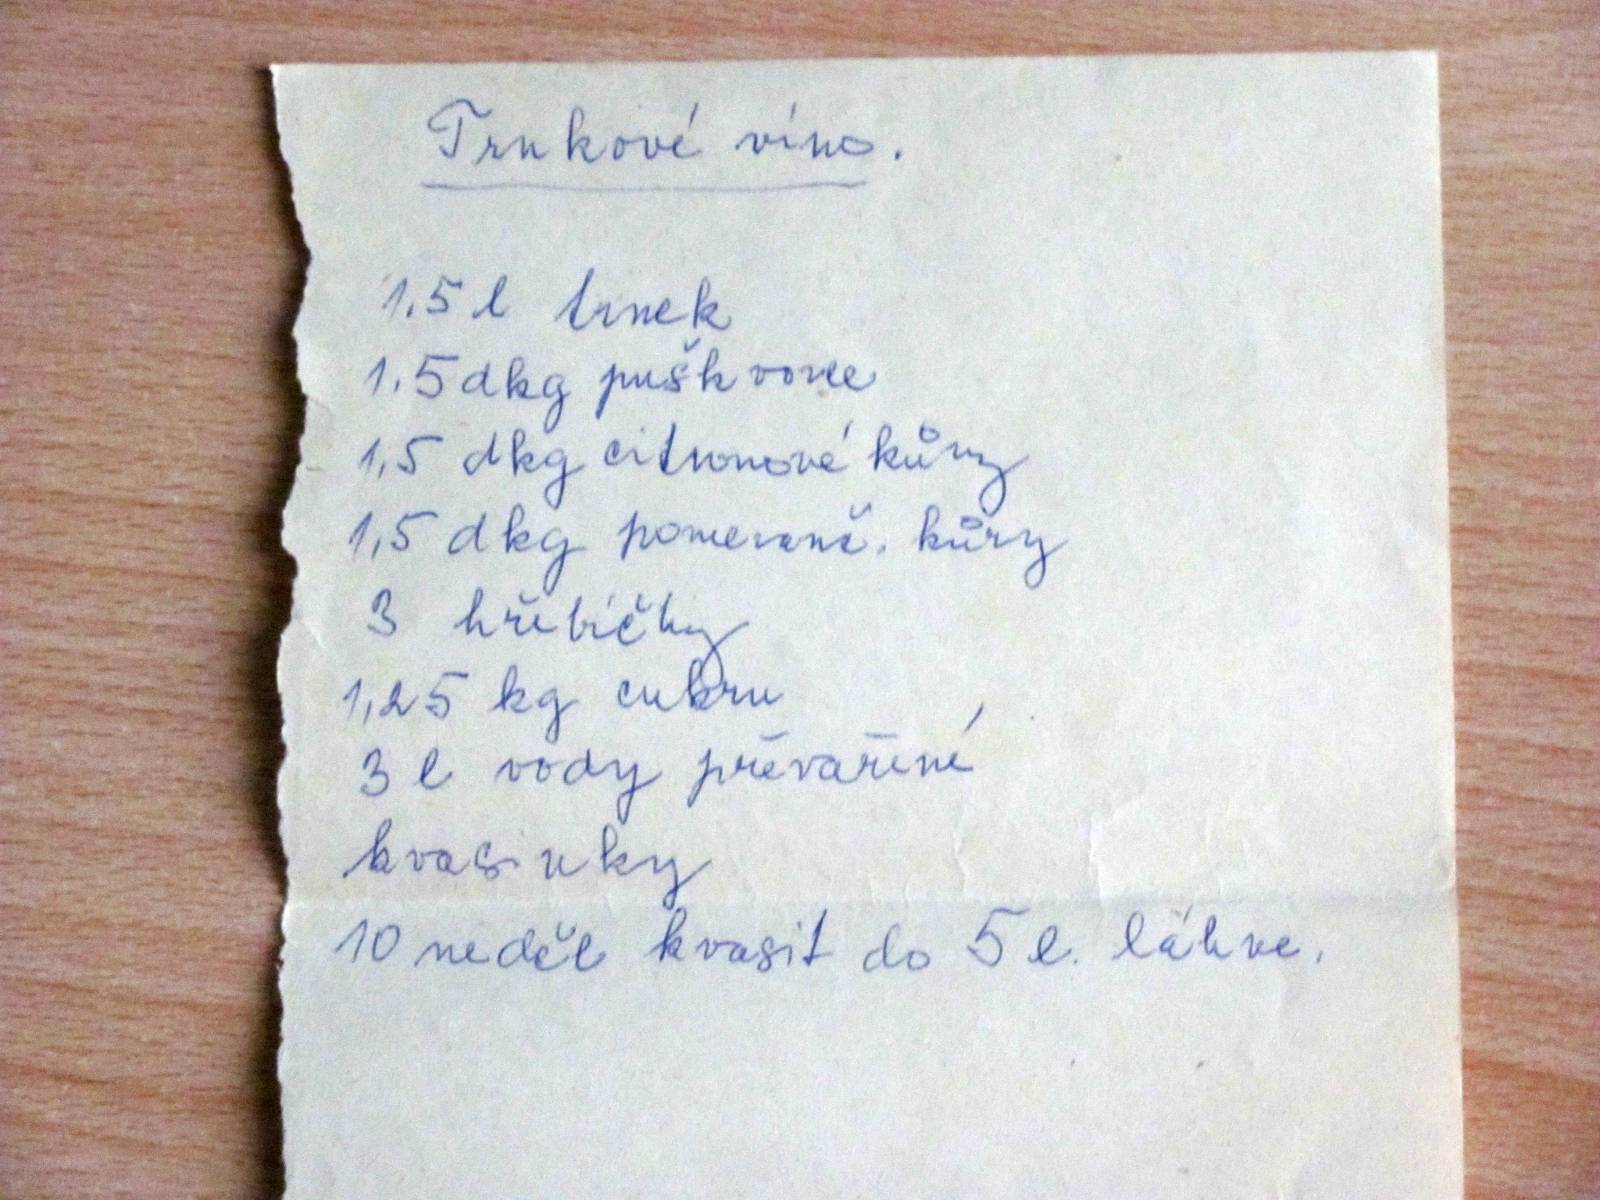 Trnkové víno.
1.5 l trnek
1.5 dkg puškvorce
1,5 dkg citronové kůry
1,5 dkg pomeranč. kůry
3 hřebíčky
1,25 kg cukru
3 l vody převařené
kvasnky
10 neděl kvasit do 5 l. láhve.